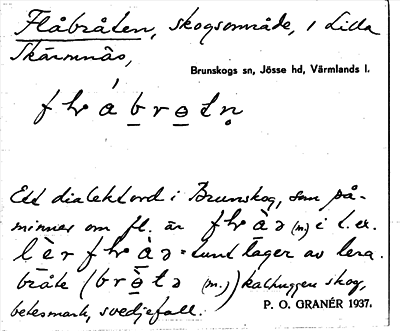 Flåbråten, skogsområde, i Lilla
Skärmnäs,
Brunskogs sn, Jösse hd, Värmlands l.
Ett dialektord i Brunskog, som på-
minner om fl. är (m.) i t. ex.
= tunt lager av lera.
bråte ( (m.)) kalhuggen skog,
betesmark, svedjefall.
P. O. GRANÉR 1937.